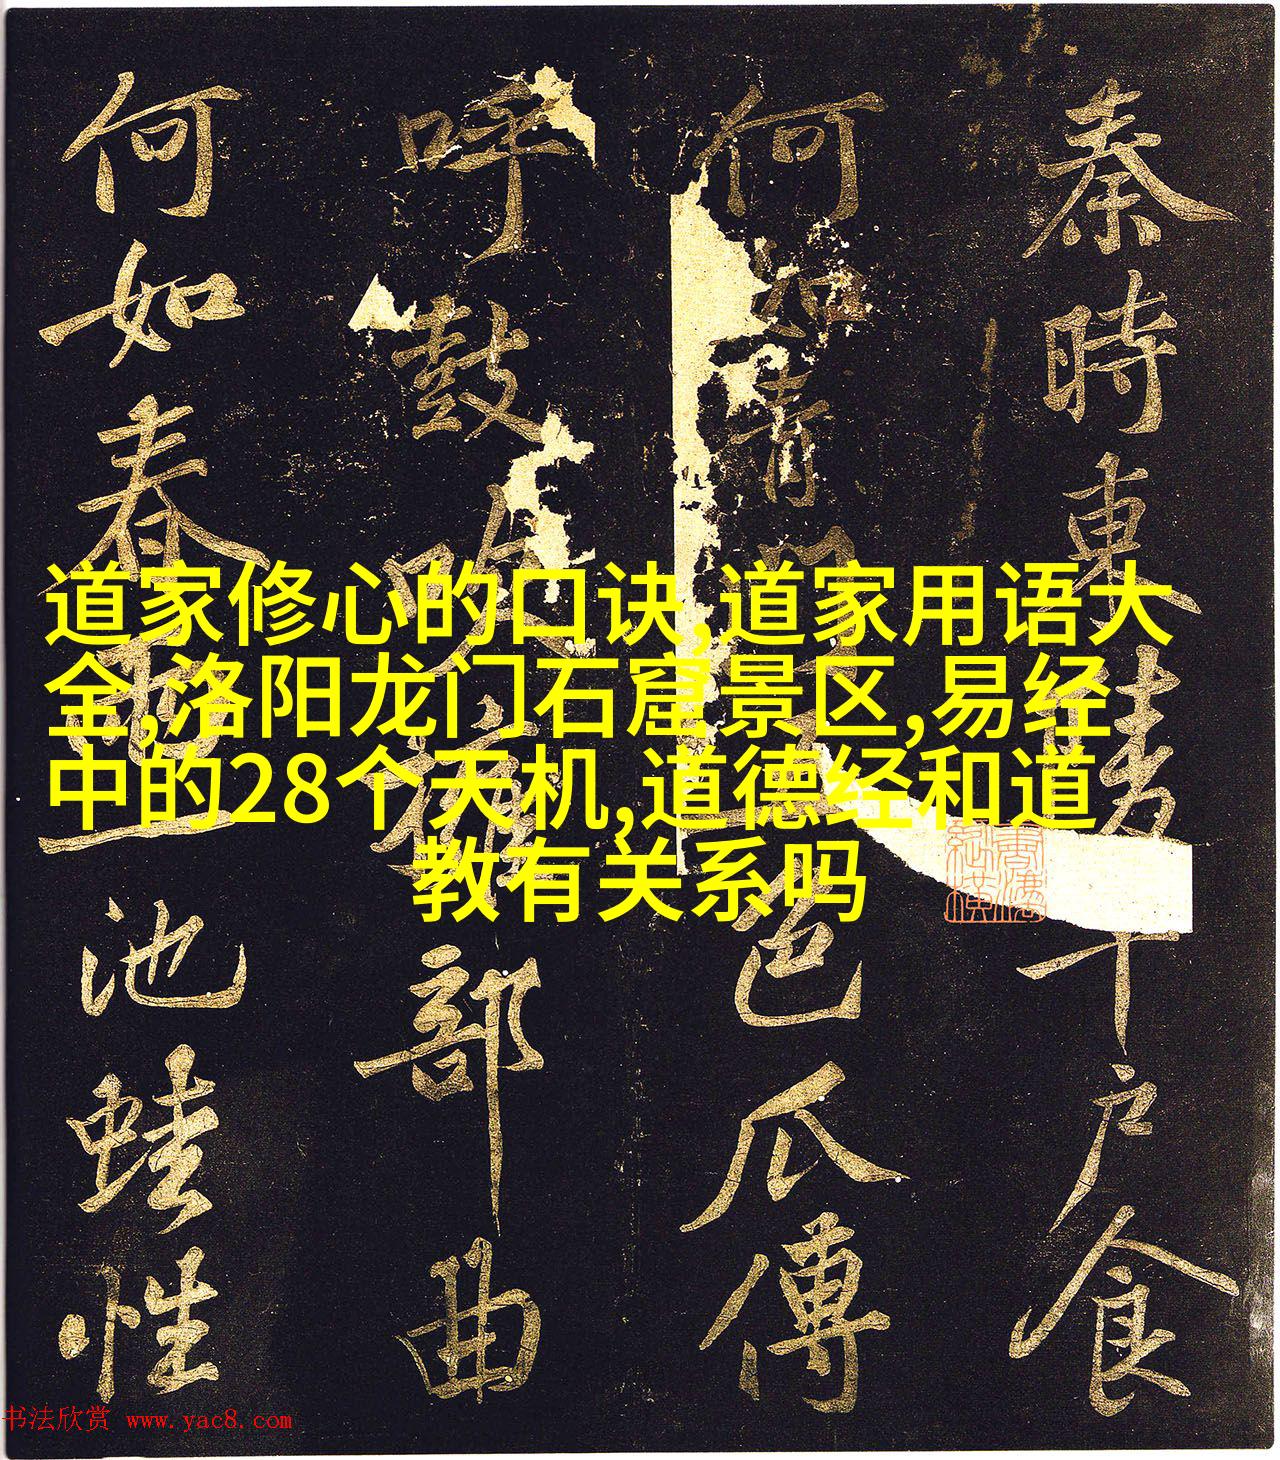 道家修心的口诀,道家用语大
全,洛阳龙门石窟景区,易经
中的28个天机,道德经和道
教有关系吗
秦時東千戶食
何如青門色瓜傳
呼鼓吹擁部曲
何如春一池蛙性
书法欣赏 www.yac8.com